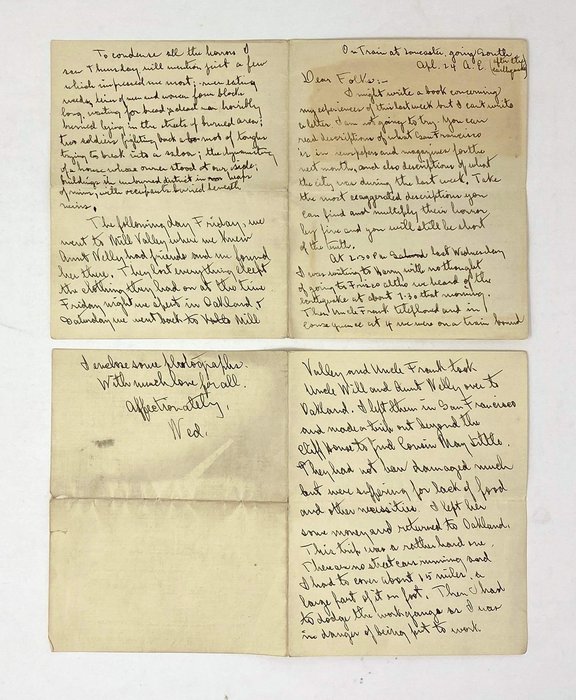 On Train at Doncaster, going South,
Apl. 24 A.E. (after the earthquake)
Dear Folks:-
I might write a book concerning
my experiences of this last week but I can't write
a letter. I am not going to try. You can
read descriptions of what San Francisco
is in newspapers and magazines for the
next month, and also descriptions of what
the city was during the last week. Take
the most exaggerated descriptions you
can find and multiply their horror
by five and you will still be short
of the truth.
At 2:30 P.M. last Wednesday
I was writing to Harry with no thought
of going to Frisco altho we heard of the
earthquake at about 7:30 that morning.
Then Uncle Frank telephoned and in
consequence at 4 we were on a train bound
To condense all the horrors I
saw Thursday will mention just a few
which impressed me most; men eating
weeds, line of men and women four blocks
long, waiting for bread; dead man horribly
burned lying in the street of burned area;
two soldiers fighting back a mob of toughs
trying to break into a saloon; the dynamiting
of a house whose owner stood at our side;
buildings in unburned district in heaps
of ruins, with occupants buried beneath
ruins.
The following day Friday, we
went to Mill Valley where we knew
Aunt Nelly had friends and we found
her there. They lost everything except
the clothing they had on at the time
Friday night we spent in Oakland &
Saturday we went back to Mill
Valley and Uncle Frank took
Uncle Will and Aunt Nelly over to
Oakland. I left them in San Francisco
and made a trip out beyond the
Cliff House to find Cousin May Little.
They had not been damaged much
but were suffering for lack of food
and other necessities. I left her
some money and returned to Oakland.
This trip was a rather hard one.
There are no street cars running and
I had to cover about 15 miles, a
large part of it on foot. Then I had
to dodge the work gangs as I was
in danger of being put to work.
I enclose some photographs.
With much love for all.
Affectionately,
Ned.